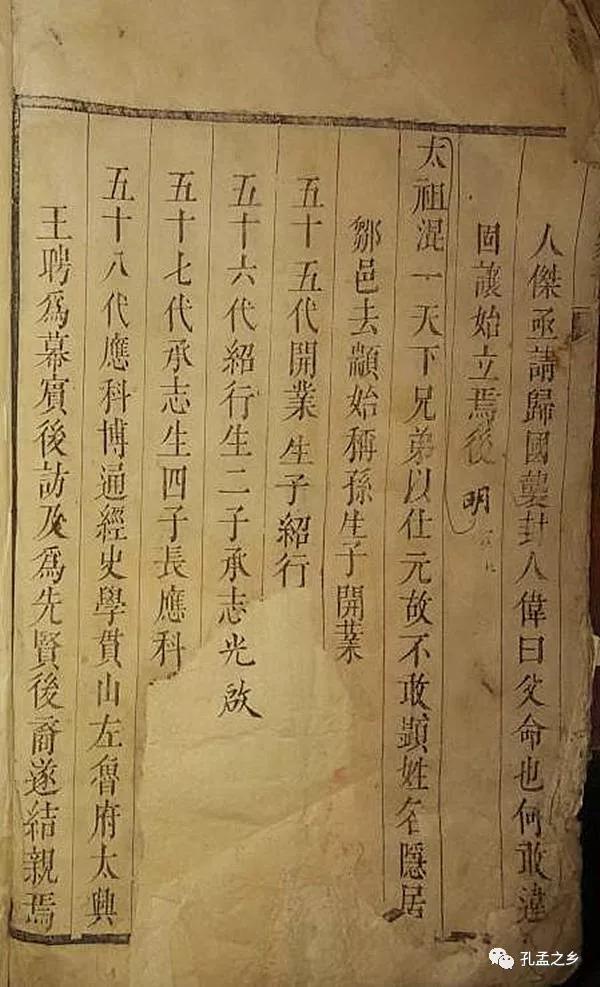 人傑亟請歸國襲封人偉曰父命也何敢違
固讓始立焉後明
太祖混一天下兄弟以仕元故不敢顯姓名隱居
鄒邑去顓始稱孫生子開業
五十五代開業生子紹行
五十六代紹行生二子承志光啟
五十七代承志生四子長應科
五十八代應科博通經史學貫山左魯府太興
王聘爲幕賓後訪及爲先賢後裔遂結親焉
孔孟之乡